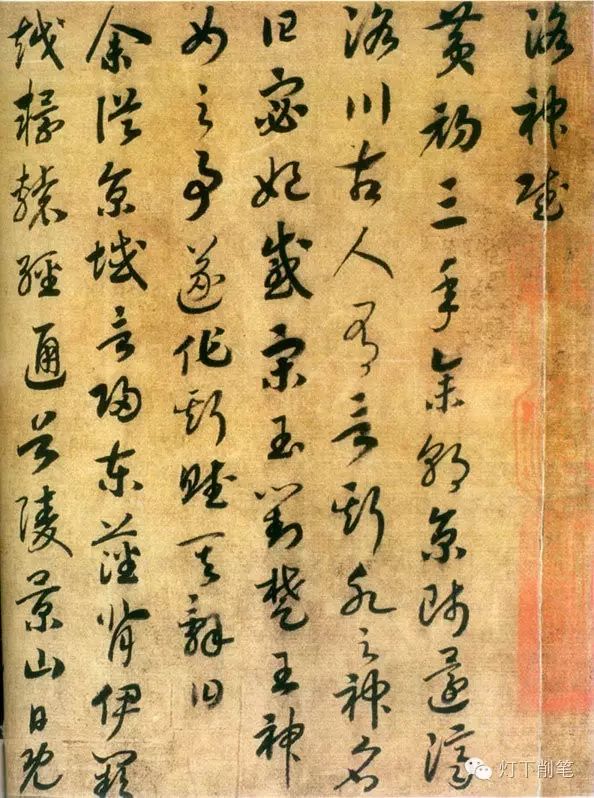 洛神賦
黃初三年余朝京師還濟
洛川古人有言斯水之神名
曰宓妃感宋玉對楚王神
女之事遂作斯賦其辭曰
余從京域言歸東藩背伊闕
越轘轅經通谷陵景山日既
灯下削笔